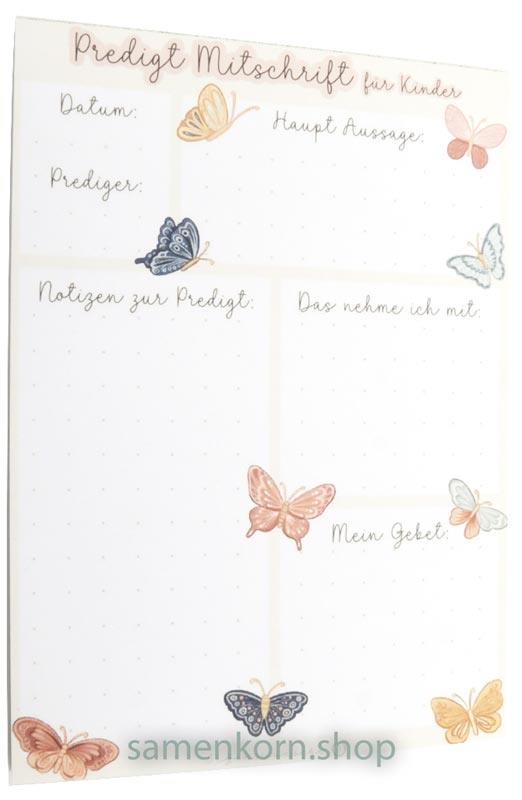 Predigt Mitschrift für Kinder
Datum:
Haupt Aussage:
Prediger:
Notizen zur Predigt:
Das nehme ich mit:
Mein Gebet:
samenkorn.shop